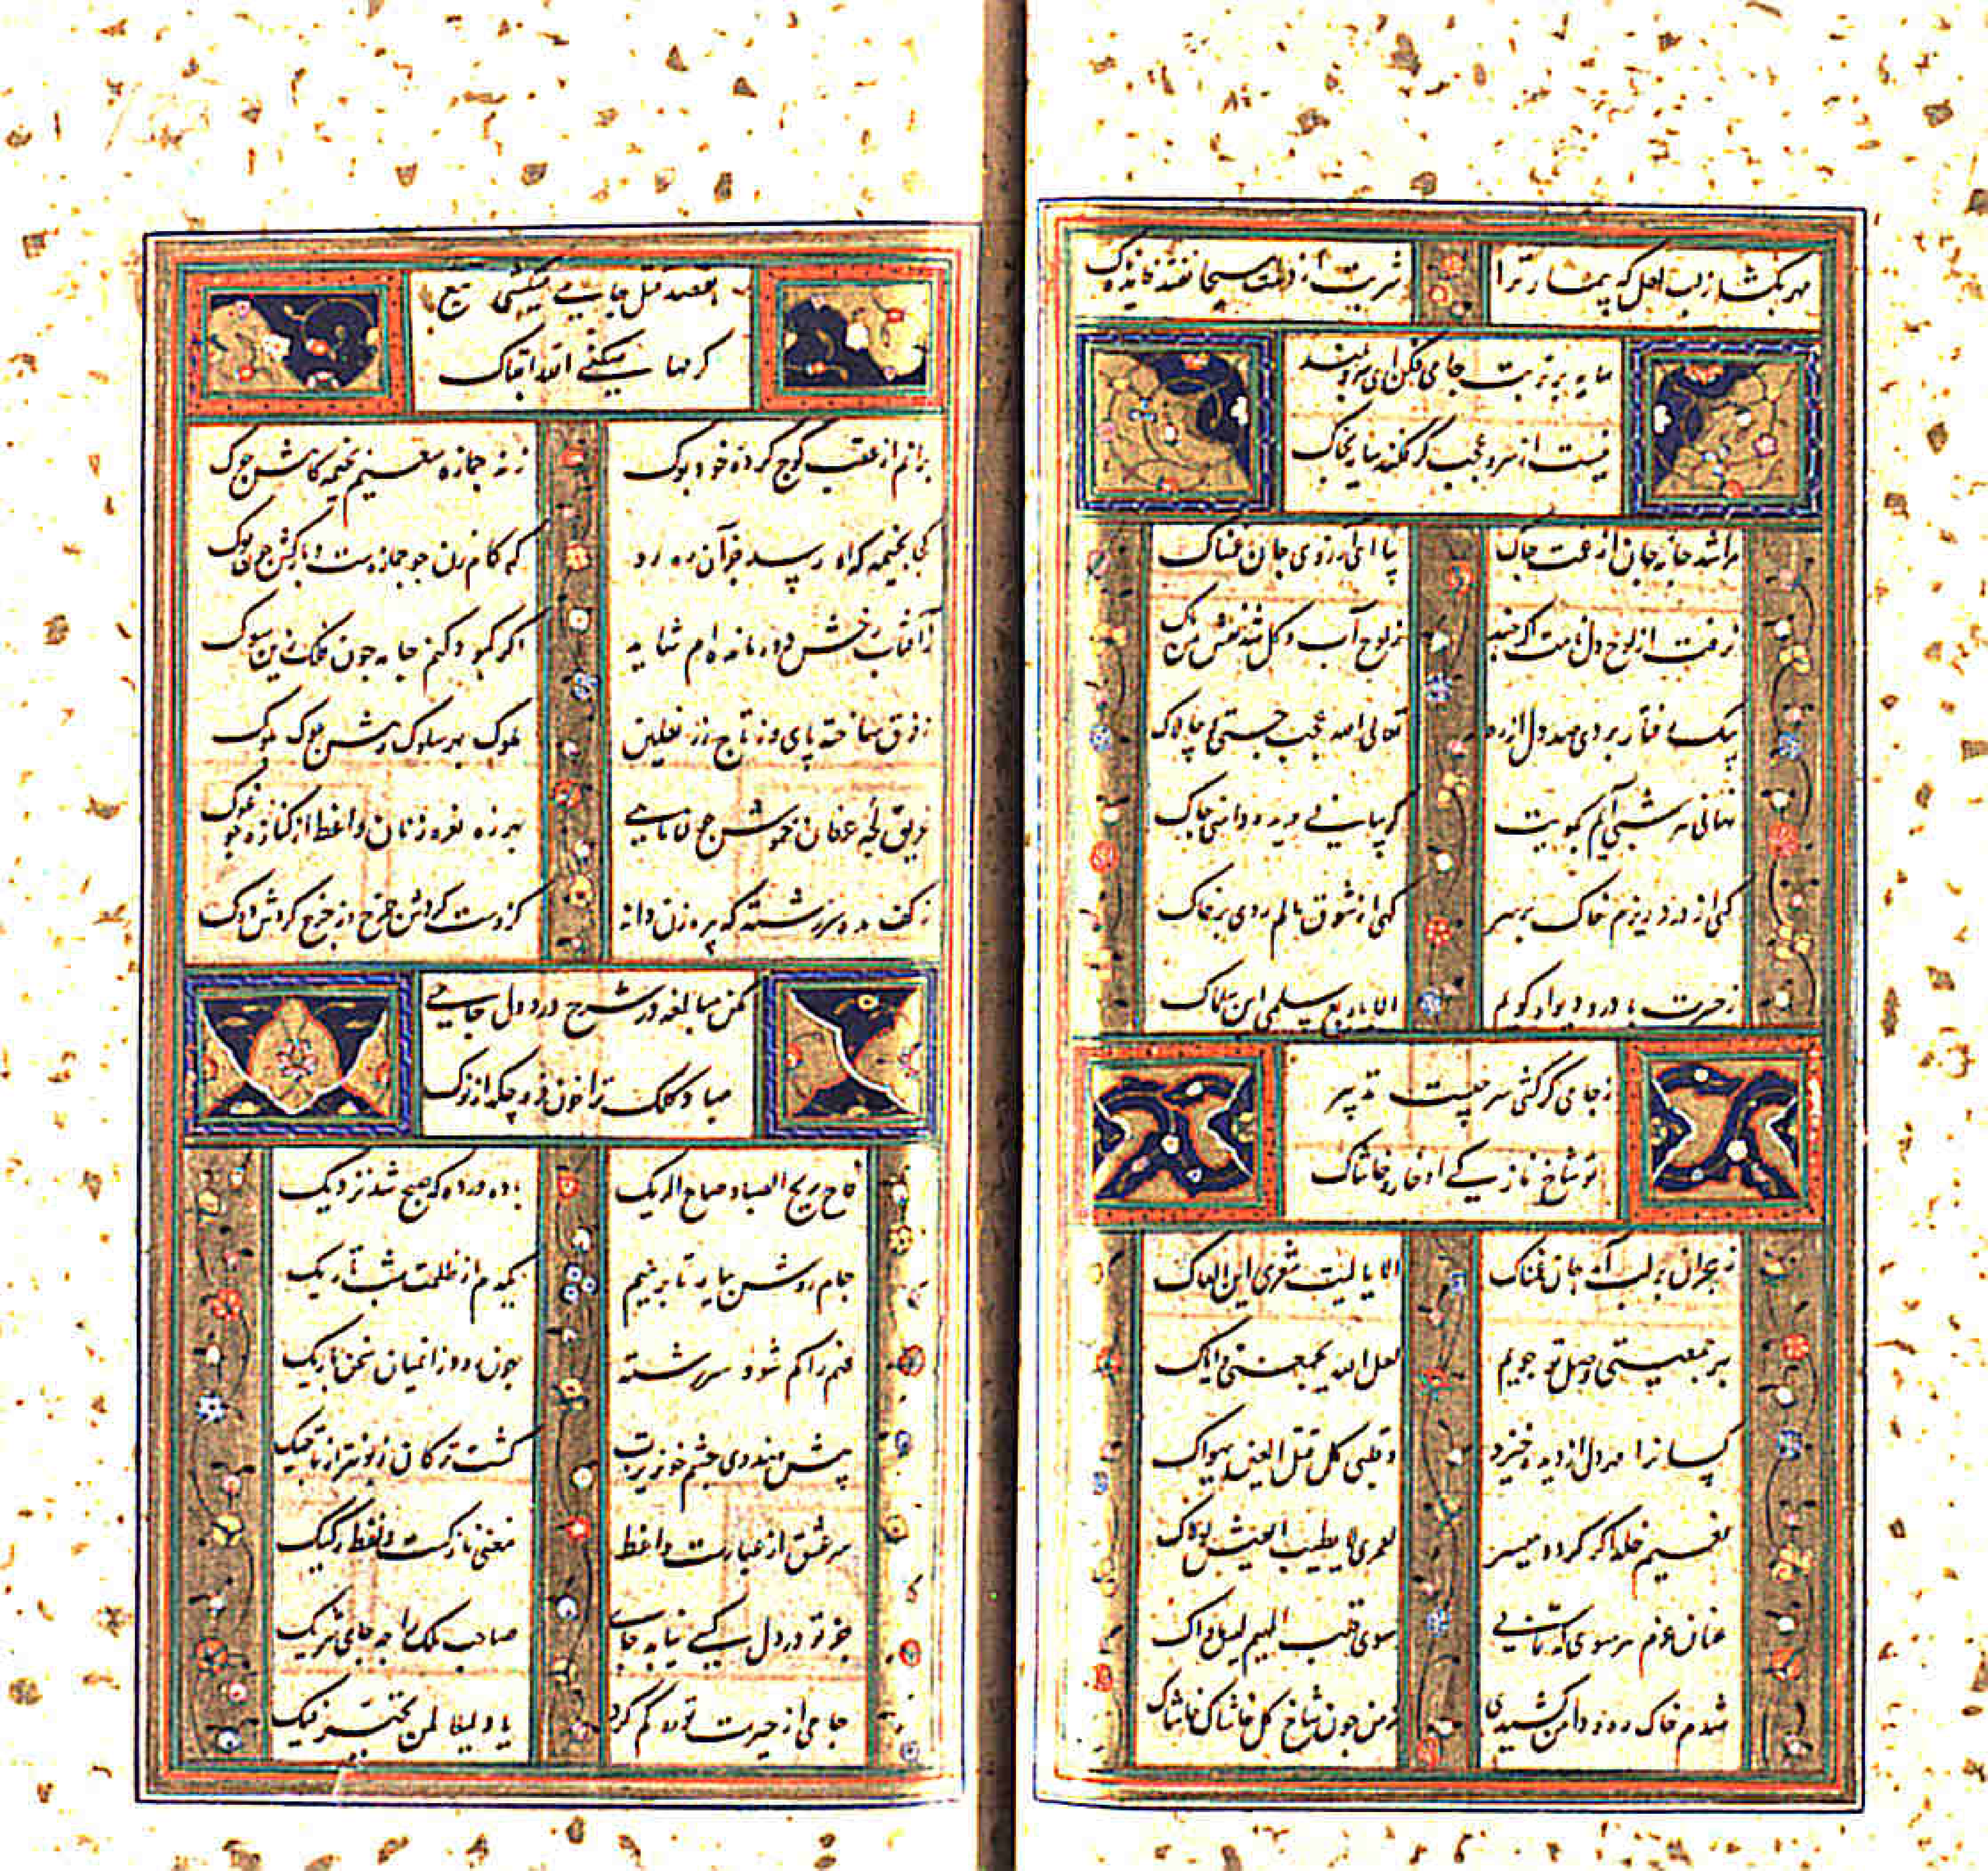 مهر بکشا ز لب لعل که بیمار ترا
شربت از دست مسیحا نفتد
سایه بر تربت جامی فکن ای سرو بلند
نیست از سرو عجب گر فکند سایه بخاک
مرا شد خانه جان از غمت چاک
بیا ای آرزوی جان غمناک
نرفت از لوح دل نامت اگر چند
ز لوح آب و گل شد نقش من پاک
بیک رفتار بردی صد دل از ره
تعالی الله عجب چستی و چالاک
نهانی هر شبی آیم بکویت
گریبانی دریده دامنی چاک
کهی از درد ریزم خاک بر سر
کهی از شوق مالم روی بر خاک
ز حسرت با در و دیوار کویم
الا یا ربع سلمی این سلماک
ز جامی گر کشی سر چیست تدبیر
تو شاخ نازکی او خار و خاشاک
ز هجران بر لب آمد جان غمناک
الا یا لیت شعری این القاک
بهر جمعیتی وصل تو جویم
لعل الله یجمعنی و ایاک
کسان را مهر دل از دیده خیزد
و قلبی کل قبل العین یهواک
نعیم خلد اگر گردد میسر
لعمری لا یطیب العیش لولاک
عنان عزم هر سوی که تابی
سوی قلب المتیم لیس ماواک
شدم خاک ره و دامن کشیدی
ز من چون شاخ گل خاشاک خاشاک
بقصد قتل جامی میکشی تیغ
کرمها میکنی الله ابقاک
برانم از عقب کوچ کرده خود بوک
زند جمازه سعیم بخیمه کاهش چوک
ز آفتاب رخش دور مانده‌ام شاید
اگر کبود کنم جامه چون فلک زین سوک
ز فرق ساخته پای و ز تاج زر نعلین
ملوک بهر سلوک رهش سلوک ملوک
غریق لجه عرفان خموش
بهرزه نعره زنان واعظ از کناره چو غوک
ز کف مده سررشته که پیرزن داند
کز دست کردش چرخ و ز چرخ کردش دوک
مکن مبالغه در شرح درد دل جامی
مباد کلک ترا خون فرو چکد از نوک
فاح ریح الصبا و صاح الدیک
باده در ده که صبح شد نزدیک
جام روشن بیار تا برهیم
یکدم از ظلمت شب تاریک
فهم را کم شود سررشته
چون رود زان میان سخن باریک
پیش هندوی چشم خونریزت
کشت ترکان زبونتر از تاجیک
سر عشق از عبارت واعظ
معنی نازکست و لفظ رکیک
جز تو در دل کسی نیابد جای
صاحب ملک را چه جای شریک
جامی از حیرت تو ره کم کرد
یا دلیلا لمن تحیر فیک